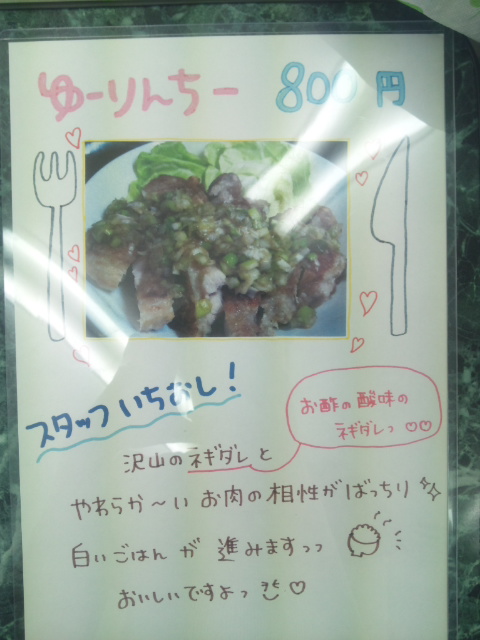 ゆーりんちー 800円
スタッフいちおし!
お酢の酸味の
ネギダレっ♡♡
沢山のネギダレと
やわらか～いお肉の相性がばっちり
白いごはんが進みますっっ
おいしいですよっ♡